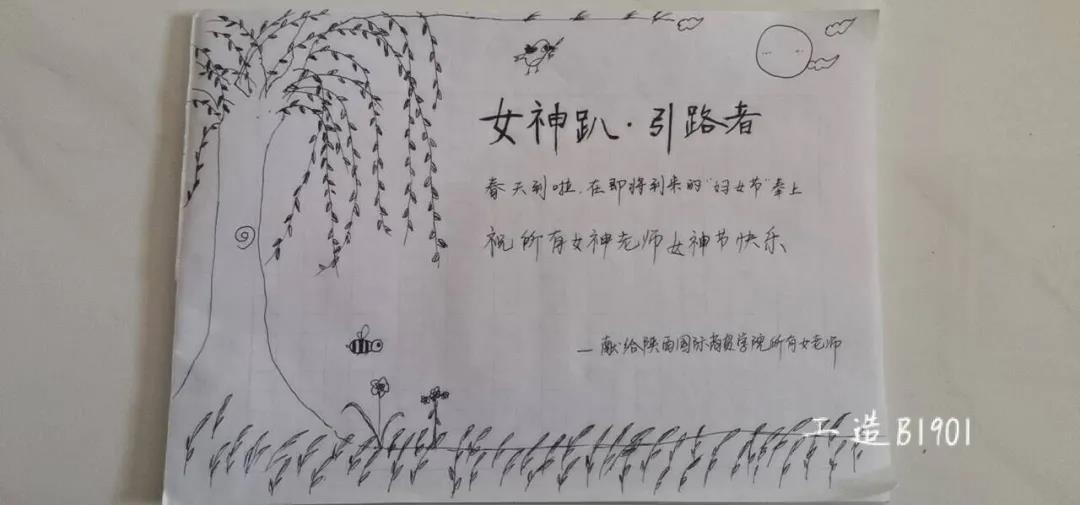 女神趴·引路者
春天到啦，在即将到来的"妇女节"奉上
祝所有女神老师女神节快乐
—献给陕西国际商贸学院所有女老师
工造B1901